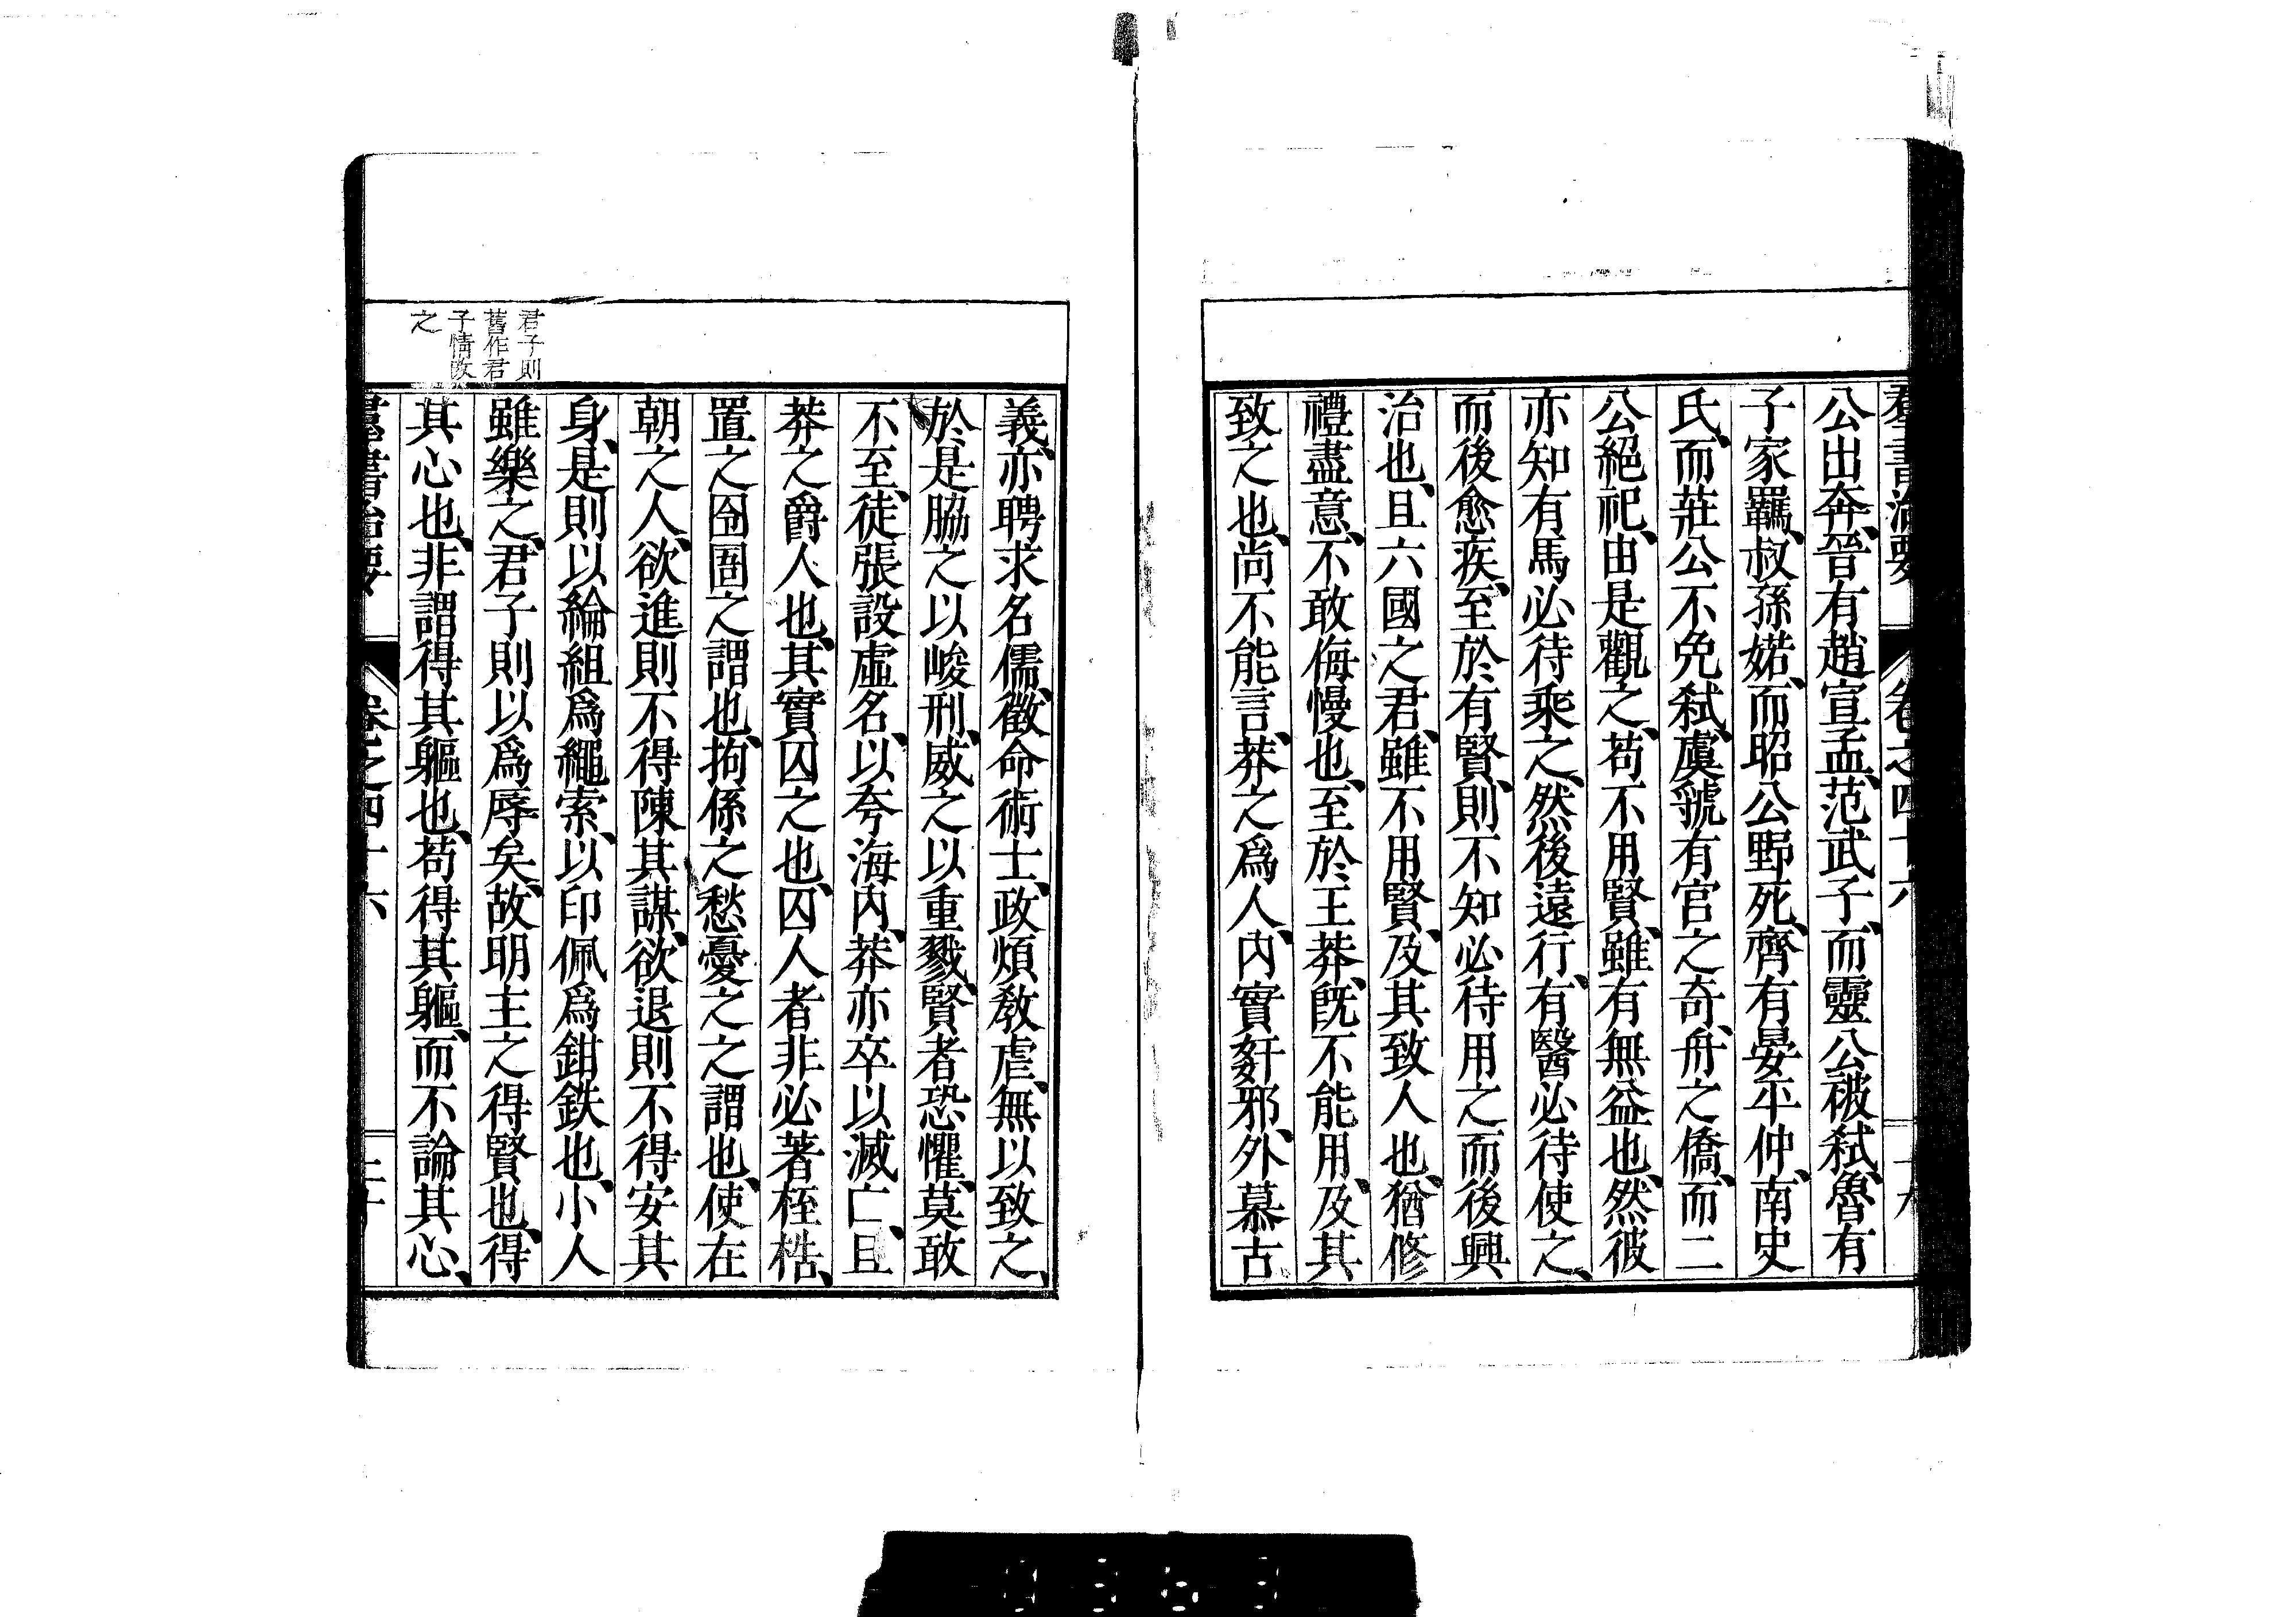 羣書治要 卷之四十六
公出奔、晉有趙宣孟、范武子、而靈公被弑、魯有
子家羈、叔孫婼、而昭公野死、齊有晏平仲、南史
氏、而莊公不免弑、虞虢有宮之奇、舟之僑、而二
公絕祀、由是觀之、苟不用賢、雖有無益也、然彼
亦知有馬必待乘之、然後遠行、有醫必待使之、
而後愈疾、至於有賢、則不知必待用之而後興
治也、且六國之君、雖不用賢、及其致人也、猶修
禮盡意、不敢侮慢也、至於王莽、旣不能用、及其
致之也、尚不能言、莽之爲人、內實姧邪、外慕古
義、亦聘求名儒、徵命術士、政煩教虐、無以致之、
於是脇之以峻刑、威之以重戮、賢者恐懼、莫敢
不至、徒張設虛名、以夸海內、莽亦卒以滅亡、且
莽之爵人也、其實囚之也、囚人者非必著桎梏、
置之囹圄之謂也、拘係之愁憂之之謂也、使在
朝之人、欲進則不得陳其謀、欲退則不得安其
身、是則以綸組爲繩索、以印佩爲鉗鉄也、小人
雖樂之、君子則以爲辱矣、故明主之得賢也、得
其心也、非謂得其軀也、苟得其軀、而不論其心、
君子則
舊作君
子情改
之
羣書治要 卷之四十六